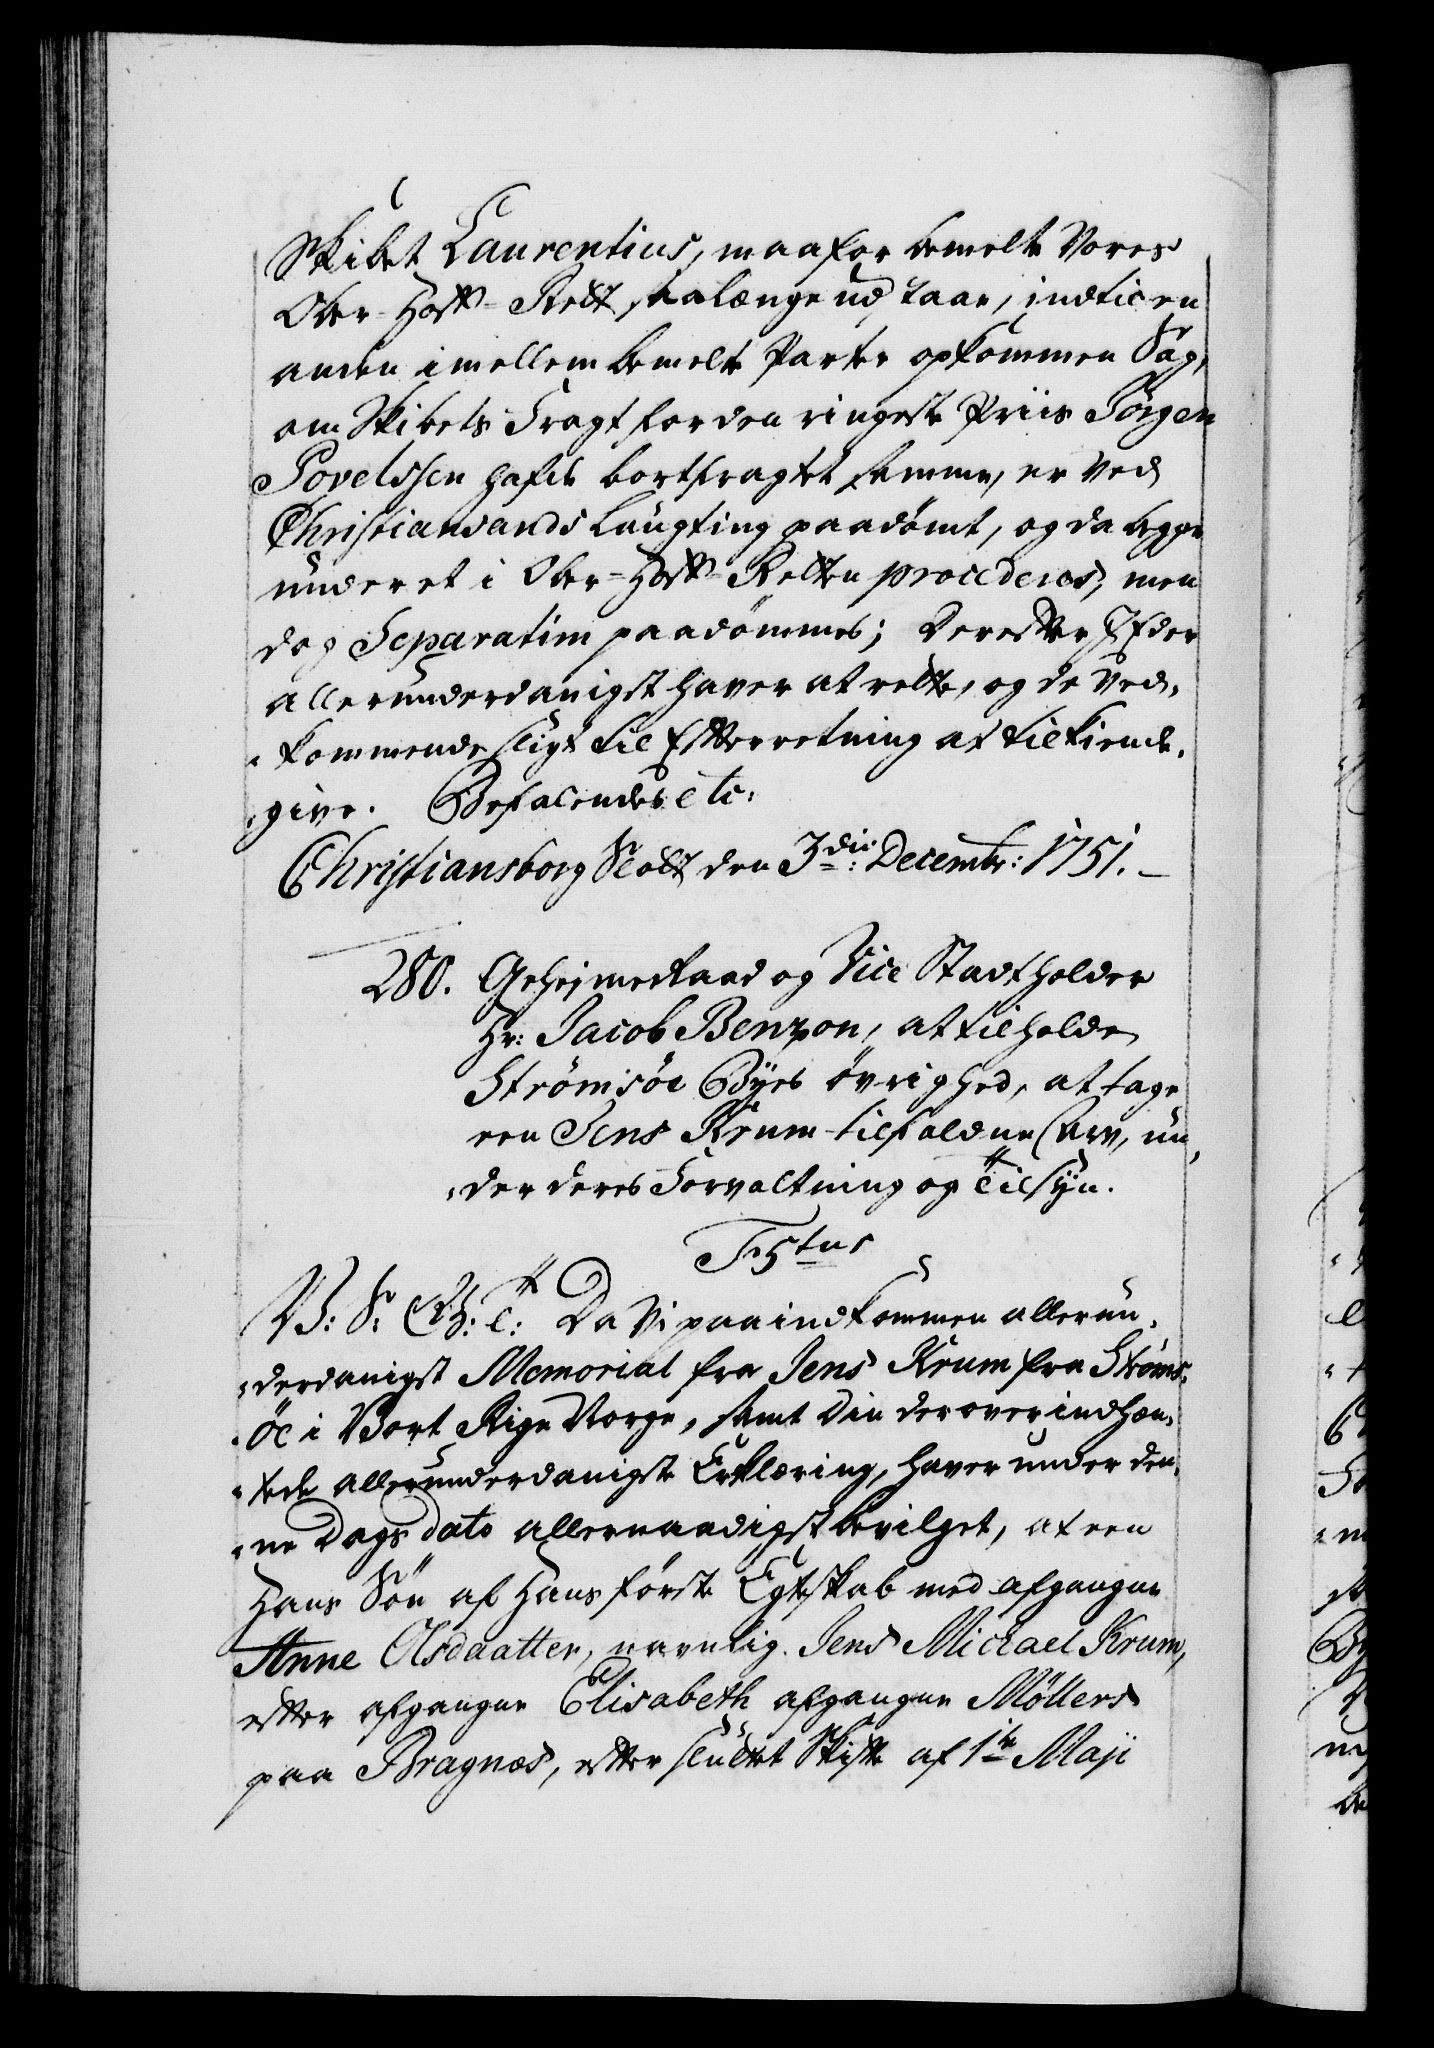 Skibet Laurentius, maa for bemelte Vores
Ober-Hoff-Rett saa længe udstaar, indtil en
anden imellem bemelte Parter opkommen Sag,
om Skibets Fragt for den ringeste Priis Jørgen
Povelssen hafde bortfragtet samme, er ved
Christiansands Laugting paadömt, og da begge
under et i Ober-Hoff-Retten procederes, men
dog Separatim paadömmes; Derefter I Eder
allerunderdanigst haver at rette, og de Ved-
kommende sligt til Efterretning at tilkiende-
give. Befalendes etc:
Christiansborg Slott den 3die: Decembr: 1751.
280. Geheimeraad og Vice Stadtholder
Hr: Jacob Benzon, at tilholde
Strömsöe Byes övrighed, at tage
een Jens Krum tilfaldne Arv, un-
der deres Forvaltning og Tilsyn.
F 5tus
V: S: G: T: Da Vi paa indkommen allerun-
derdanigst Memorial fra Jens Krum fra Ströms-
öe i Vort Rige Norge, samt Din derover indhæn-
tede allerunderdanigste Erklæring, haver under den-
ne Dags dato allernaadigst bevilget, at een
Hans Sön af Hans förste Egteskab med afgangne
Anne Olsdaatter, navnlig. Jens Michael Krum,
efter afgangne Elisabeth afgangne Möllers
paa Bragnæs, efter sluttet Skifte af 1te Maji